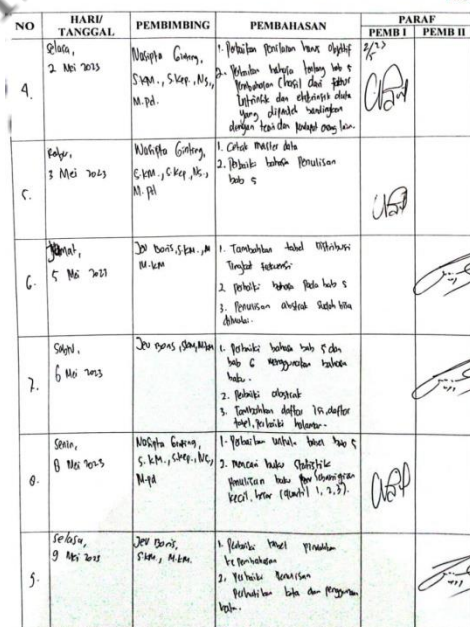 NO
HARI/
TANGGAL
PEMBIMBING
PEMBAHASAN
PARAF
PEMB I
PEMB II
4.
Selasa,
2 Mei 2023
Nasipta Ginting,
S.KM., S.Kep., Ns.,
M.Pd.
1. Perbaikan penilaian harus objektif
2. Perbaikan bahasa tentang bab 5
Pembahasan (hasil dari faktor
intrinsik dan ekstrinsik data
yang diperoleh bandingkan
dengan teori dan pendapat orang lain.
2/5 23
5.
Rabu,
3 Mei 2023
Nasipta Ginting,
S.KM., S.Kep., Ns.,
M.Pd
1. Cetak master data
2. Perbaiki bahasa Penulisan
bab 5
6.
Jumat,
5 Mei 2023
Jev Boris, S.KM., M
M.KM
1. Tambahkan tabel Distribusi
Tingkat
2. Perbaiki bahasa Pada bab 5
3. Penulisan abstrak sudah bisa
dimulai.
7.
Sabtu,
6 Mei 2023
Jev Boris, SKM, M.KM
1. Perbaiki bahasa bab 5 dan
bab 6 menggunakan bahasa
baku.
2. Perbaiki abstrak
3. Tambahkan daftar isi, daftar
tabel, perbaiki halaman.
8.
Senin,
8 Mei 2023
Nasipta Ginting,
S.KM., S.Kep., Ns,
M.Pd
1. Perbaikan untuk tabel bab 5
2. mencari buku Statistik
Penulisan baku
kecil, besar (quartil 1, 2, 3).
9.
Selasa,
9 Mei 2023
Jev Boris,
S.KM., M.KM.
1. Perbaiki tabel Pindahkan
ke pembahasan
2. Perbaiki Penulisan
Perhatikan kata dan penggunaan